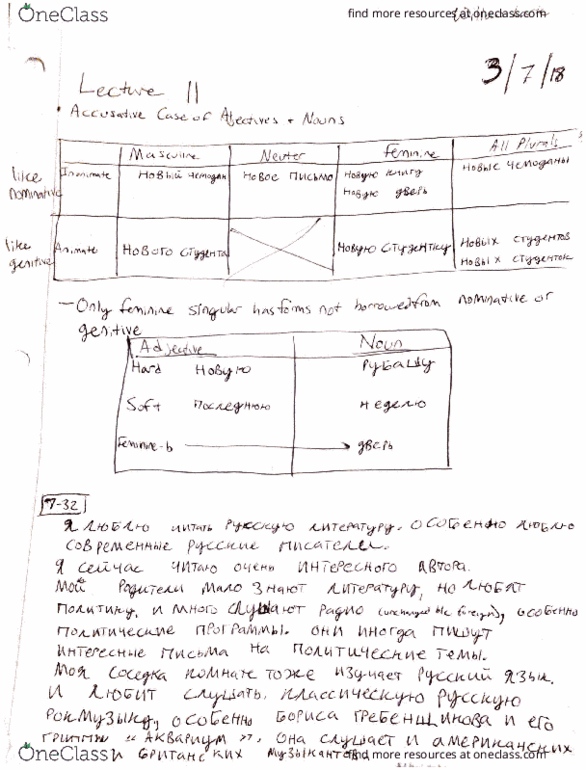 OneClass
find more resources at oneclass.com
3/7/18
Lecture 11
Accusative Case of Adjectives + Nouns
Masculine Neuter Feminine All Plurals
like nominative Inanimate Новый чемодан Новое письмо Новую книгу Новые чемоданы
Новую дверь
like genitive Animate Нового студента Новую студентку Новых студентов
Новых студенток
— Only feminine singular has forms not borrowed from nominative or
genitive
Adjective Noun
Hard Новую рубашку
Soft Последнюю неделю
Feminine-ь дверь
7-32
Я люблю читать русскую литературу. особенно люблю
современные русские писателей.
Я сейчас читаю очень интересного автора.
Мой родители мало знают литературу, но любят
политику, и много слушают радио особенно
политические программы. они иногда пишут
интересные письма на политические темы.
Моя соседка комнате тоже изучает русский язык.
И любит слушать классическую русскую
рокмузыку, особенно Бориса Гребенщикова и его
группы «Аквариум». она слушает и американских
и британских музыкантов
find more resources at oneclass.com
OneClass